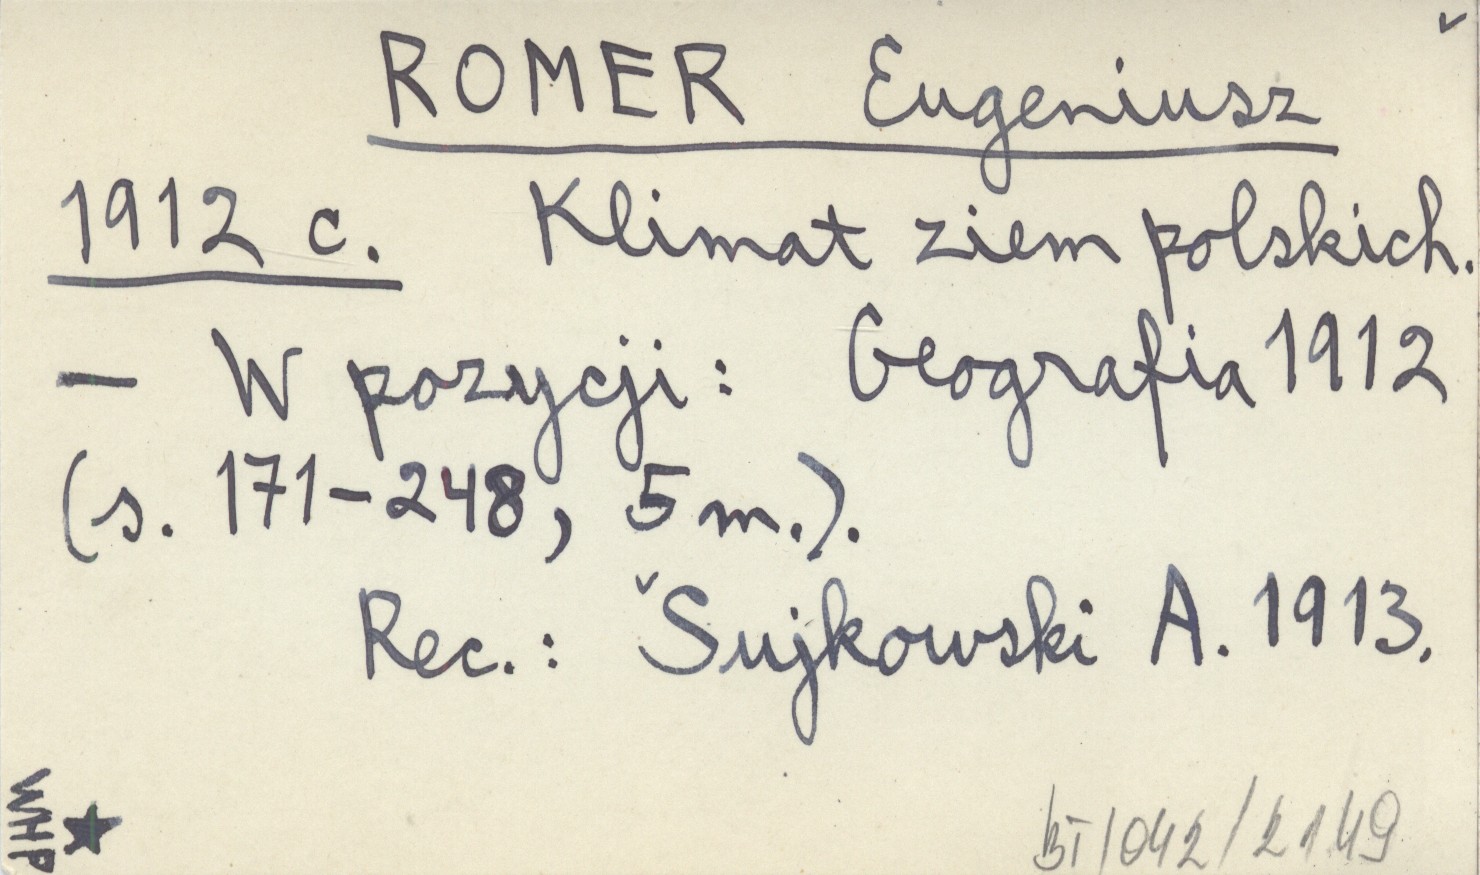 ROMER Eugeniusz
1912 c. Klimat ziem polskich.
— W pozycji: Geografia 1912
(s. 171–248, 5 m.).
Rec.: Sujkowski A. 1913.
WHP
BI/042/2149